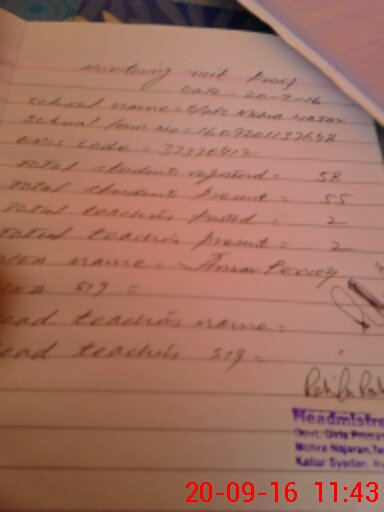 monitoring visit proof
Date = 20-9-16
school name = GGPS Mohra Najar
School form no = 1609201137698
EMIS code = 37370417
Total students registerd = 58
Total students present = 55
Total teachers posted = 2
Total teachers present = 2
name = Pervez
sig =
ead teachers name =
ead teachers sig =
Headmistre
Govt. Girls Primary
Mohra Najaran, Te
Kallar Syedan,
20-09-16 11:43